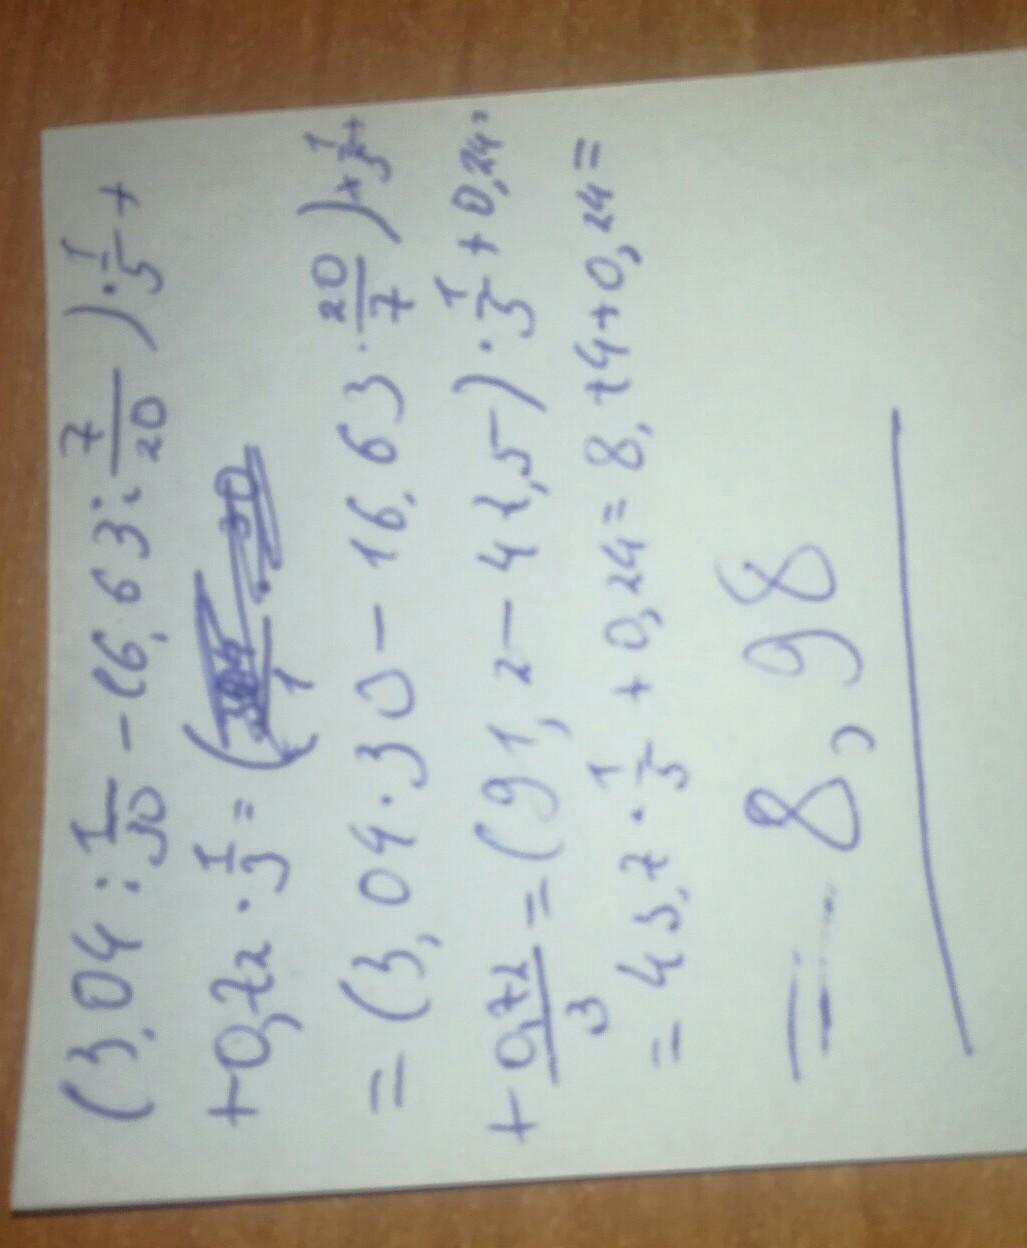 (3,04 : 1/30 - 16,63 : 7/20) · 1/5 +
+ 0,72 · 1/3 = (
= (3,04 · 30 - 16,63 · 20/7) · 1/5 +
+ 0,72/3 = (91,2 - 47,5) · 1/5 + 0,24 =
= 43,7 · 1/5 + 0,24 = 8,74 + 0,24 =
= 8,98